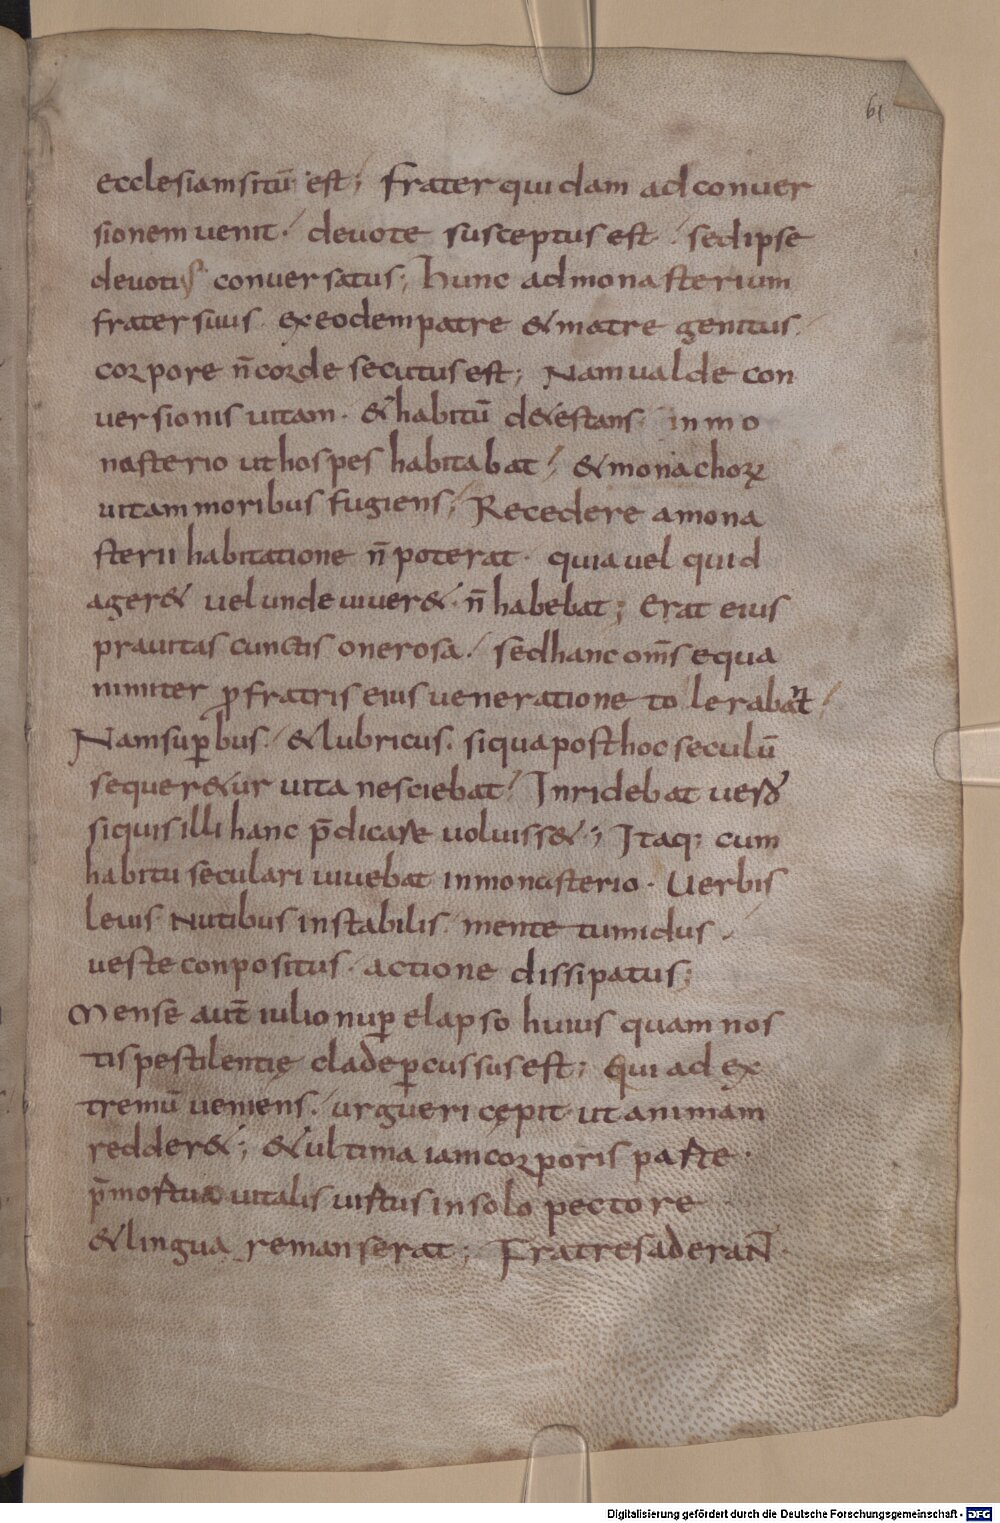 61
ecclesiam situ̅ est; frater quidam ad conuer
sionem uenit· deuote susceptus est· sed ipse
deuotius conuersatus; hunc ad monasterium
frater suus· ex eodem patre & matre genitus·
corpore n̅ corde secutus est; Nam ualde con
uersionis uitam· & habitu̅ de&estans· in mo
nasterio ut hospes habitabat; & monachoꝝ
uitam moribus fugiens; Recedere a mona
sterii habitatione n̅ poterat· quia uel quid
ager& uel unde uiuer& n̅ habebat; Erat eius
prauitas cunctis onerosa· sed hanc om̅s equa
nimiter ꝓ fratris eius ueneratione tolerabant
Nam suꝑbus· & lubricus· si qua post hoc seculu̅
sequer&ur uita nesciebat· Inridebat uero
si quis illi hanc p̅dicare uoluiss&; Itaq; cum
habitu seculari uiuebat in monasterio· Uerbis
leuis· Nutibus instabilis· mente tumidus·
ueste conpositus· actione dissipatus;
Mense aut̅ iulio nuꝑ elapso huius quam nos
tis pestilentię clade ꝑcussus est; Qui ad ex
tremu̅ ueniens· urgueri cępit· ut animam
redder&; & ultima iam corporis parte·
p̅mortua uitalis uirtus in solo pectore
& lingua remanserat; Fratres aderant·
Digitalisierung gefördert durch die Deutsche Forschungsgemeinschaft - DFG